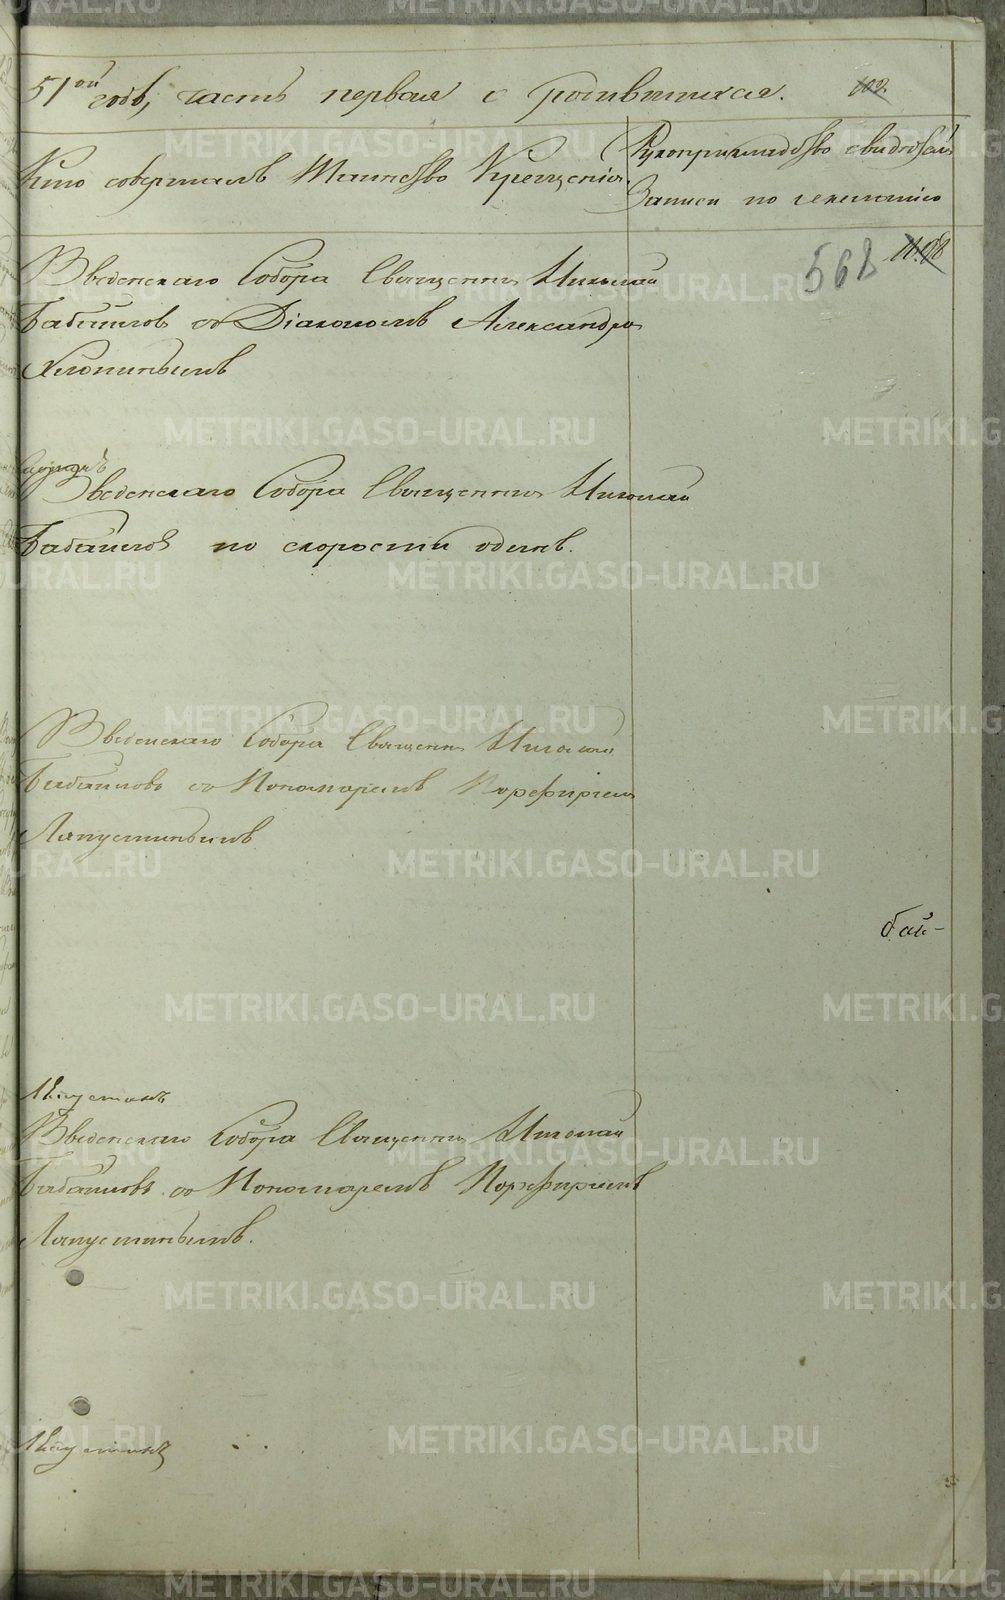 51ой годъ, часть первая о родившихся. 102.
Кто совершалъ Таинство Крещенія. Рукоприкладство свидѣтелей
записи по желанію
568
Введенскаго Собора Священникъ Николай
Бабайловъ съ Діакономъ Александромъ
Хлопинымъ
Введенскаго Собора Священникъ Николай
Бабайловъ по скорости одинъ.
Введенскаго Собора Священникъ Николай
Бабайловъ съ Пономаремъ Порфиріемъ
Лапустинымъ
бай-
Введенскаго Собора Священникъ Николай
Бабайловъ съ Пономаремъ Порфиріемъ
Лапустинымъ.
METRIKI.GASO-URAL.RU